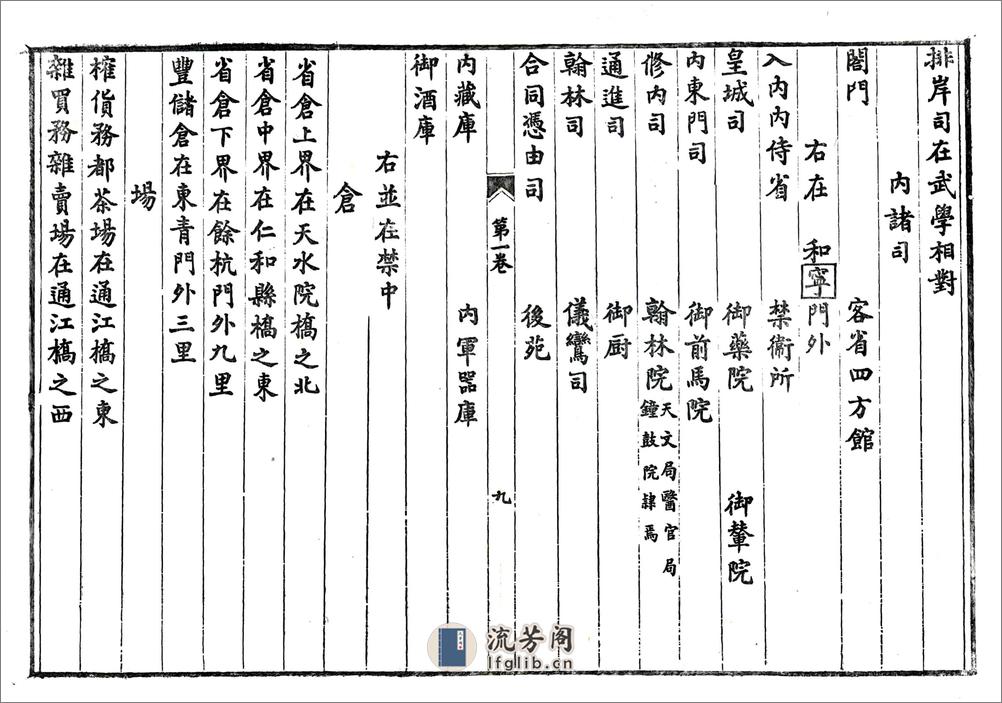 排岸司在武學相對
内諸司
閤門 客省四方館
右在 和寧門外
入内内侍省 禁衞所
皇城司 御藥院 御輦院
内東門司 御前馬院
修内司 翰林院 天文局醫官局
鐘鼓院隷焉
通進司 御厨
翰林司 儀鸞司
合同憑由司 後苑
第一卷 九
内藏庫 内軍器庫
御酒庫
右並在禁中
倉
省倉上界在天水院橋之北
省倉中界在仁和縣橋之東
省倉下界在餘杭門外九里
豐儲倉在東青門外三里
場
榷貨務都茶場在通江橋之東
雜買務雜賣場在通江橋之西
流芳阁
lfglib.cn